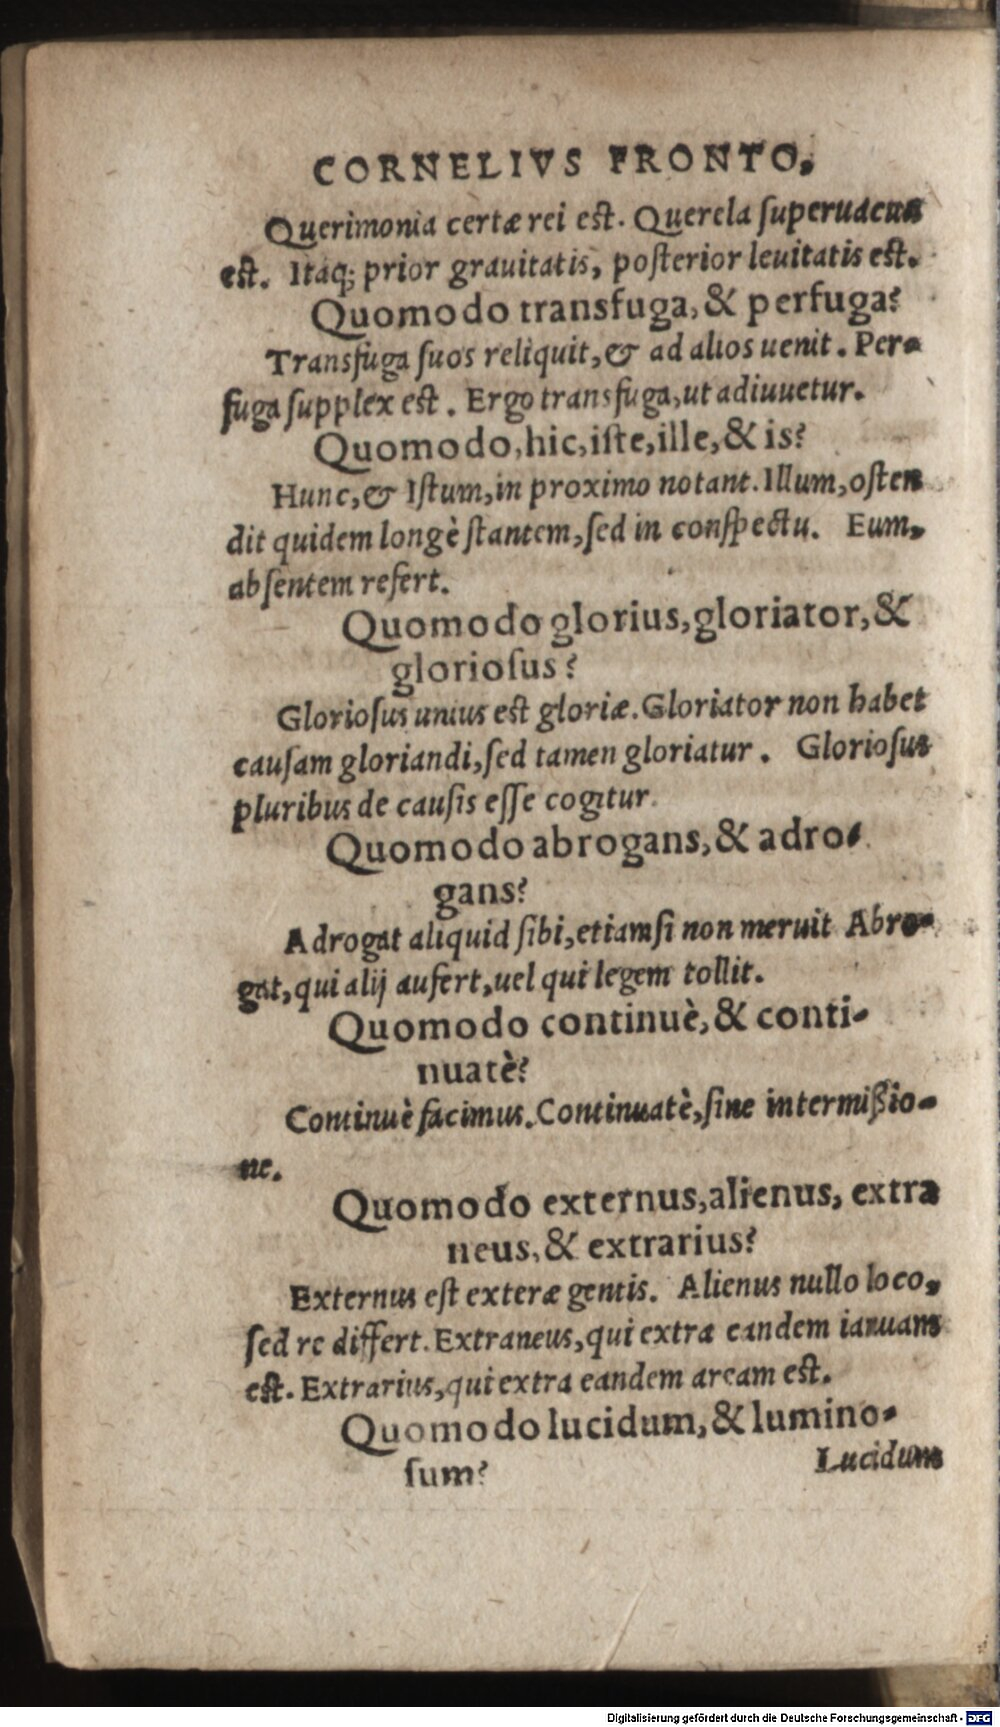 CORNELIVS FRONTO.
Querimonia certæ rei est. Querela ſuperuacua
eſt. Itaq; prior grauitatis, poſterior leuitatis eſt.
Quomodo transfuga, & perfuga?
Transfuga ſuos reliquit, & ad alios uenit. Per-
fuga ſupplex eſt. Ergo transfuga, ut adiuuetur.
Quomodo, hic, iſte, ille, & is?
Hunc, & Iſtum, in proximo notant. Illum, oſten
dit quidem longè ſtantem, ſed in conſpectu. Eum,
abſentem refert.
Quomodo glorius, gloriator, &
glorioſus?
Glorioſus unius eſt gloriæ. Gloriator non habet
cauſam gloriandi, ſed tamen gloriatur. Glorioſus
pluribus de cauſis eſſe cogitur.
Quomodo abrogans, & adro-
gans?
Adrogat aliquid ſibi, etiamſi non meruit Abro-
gat, qui alij aufert, uel qui legem tollit.
Quomodo continuè, & conti-
nuatè?
Continuè facimus. Continuatè, ſine intermißio-
ne.
Quomodo externus, alienus, extra
neus, & extrarius?
Externus eſt exteræ gentis. Alienus nullo loco,
ſed re differt. Extraneus, qui extra eandem ianuam
eſt. Extrarius, qui extra eandem arcam eſt.
Quomodo lucidum, & lumino-
ſum?
Lucidum
Digitalisierung gefördert durch die Deutsche Forschungsgemeinschaft - DFG